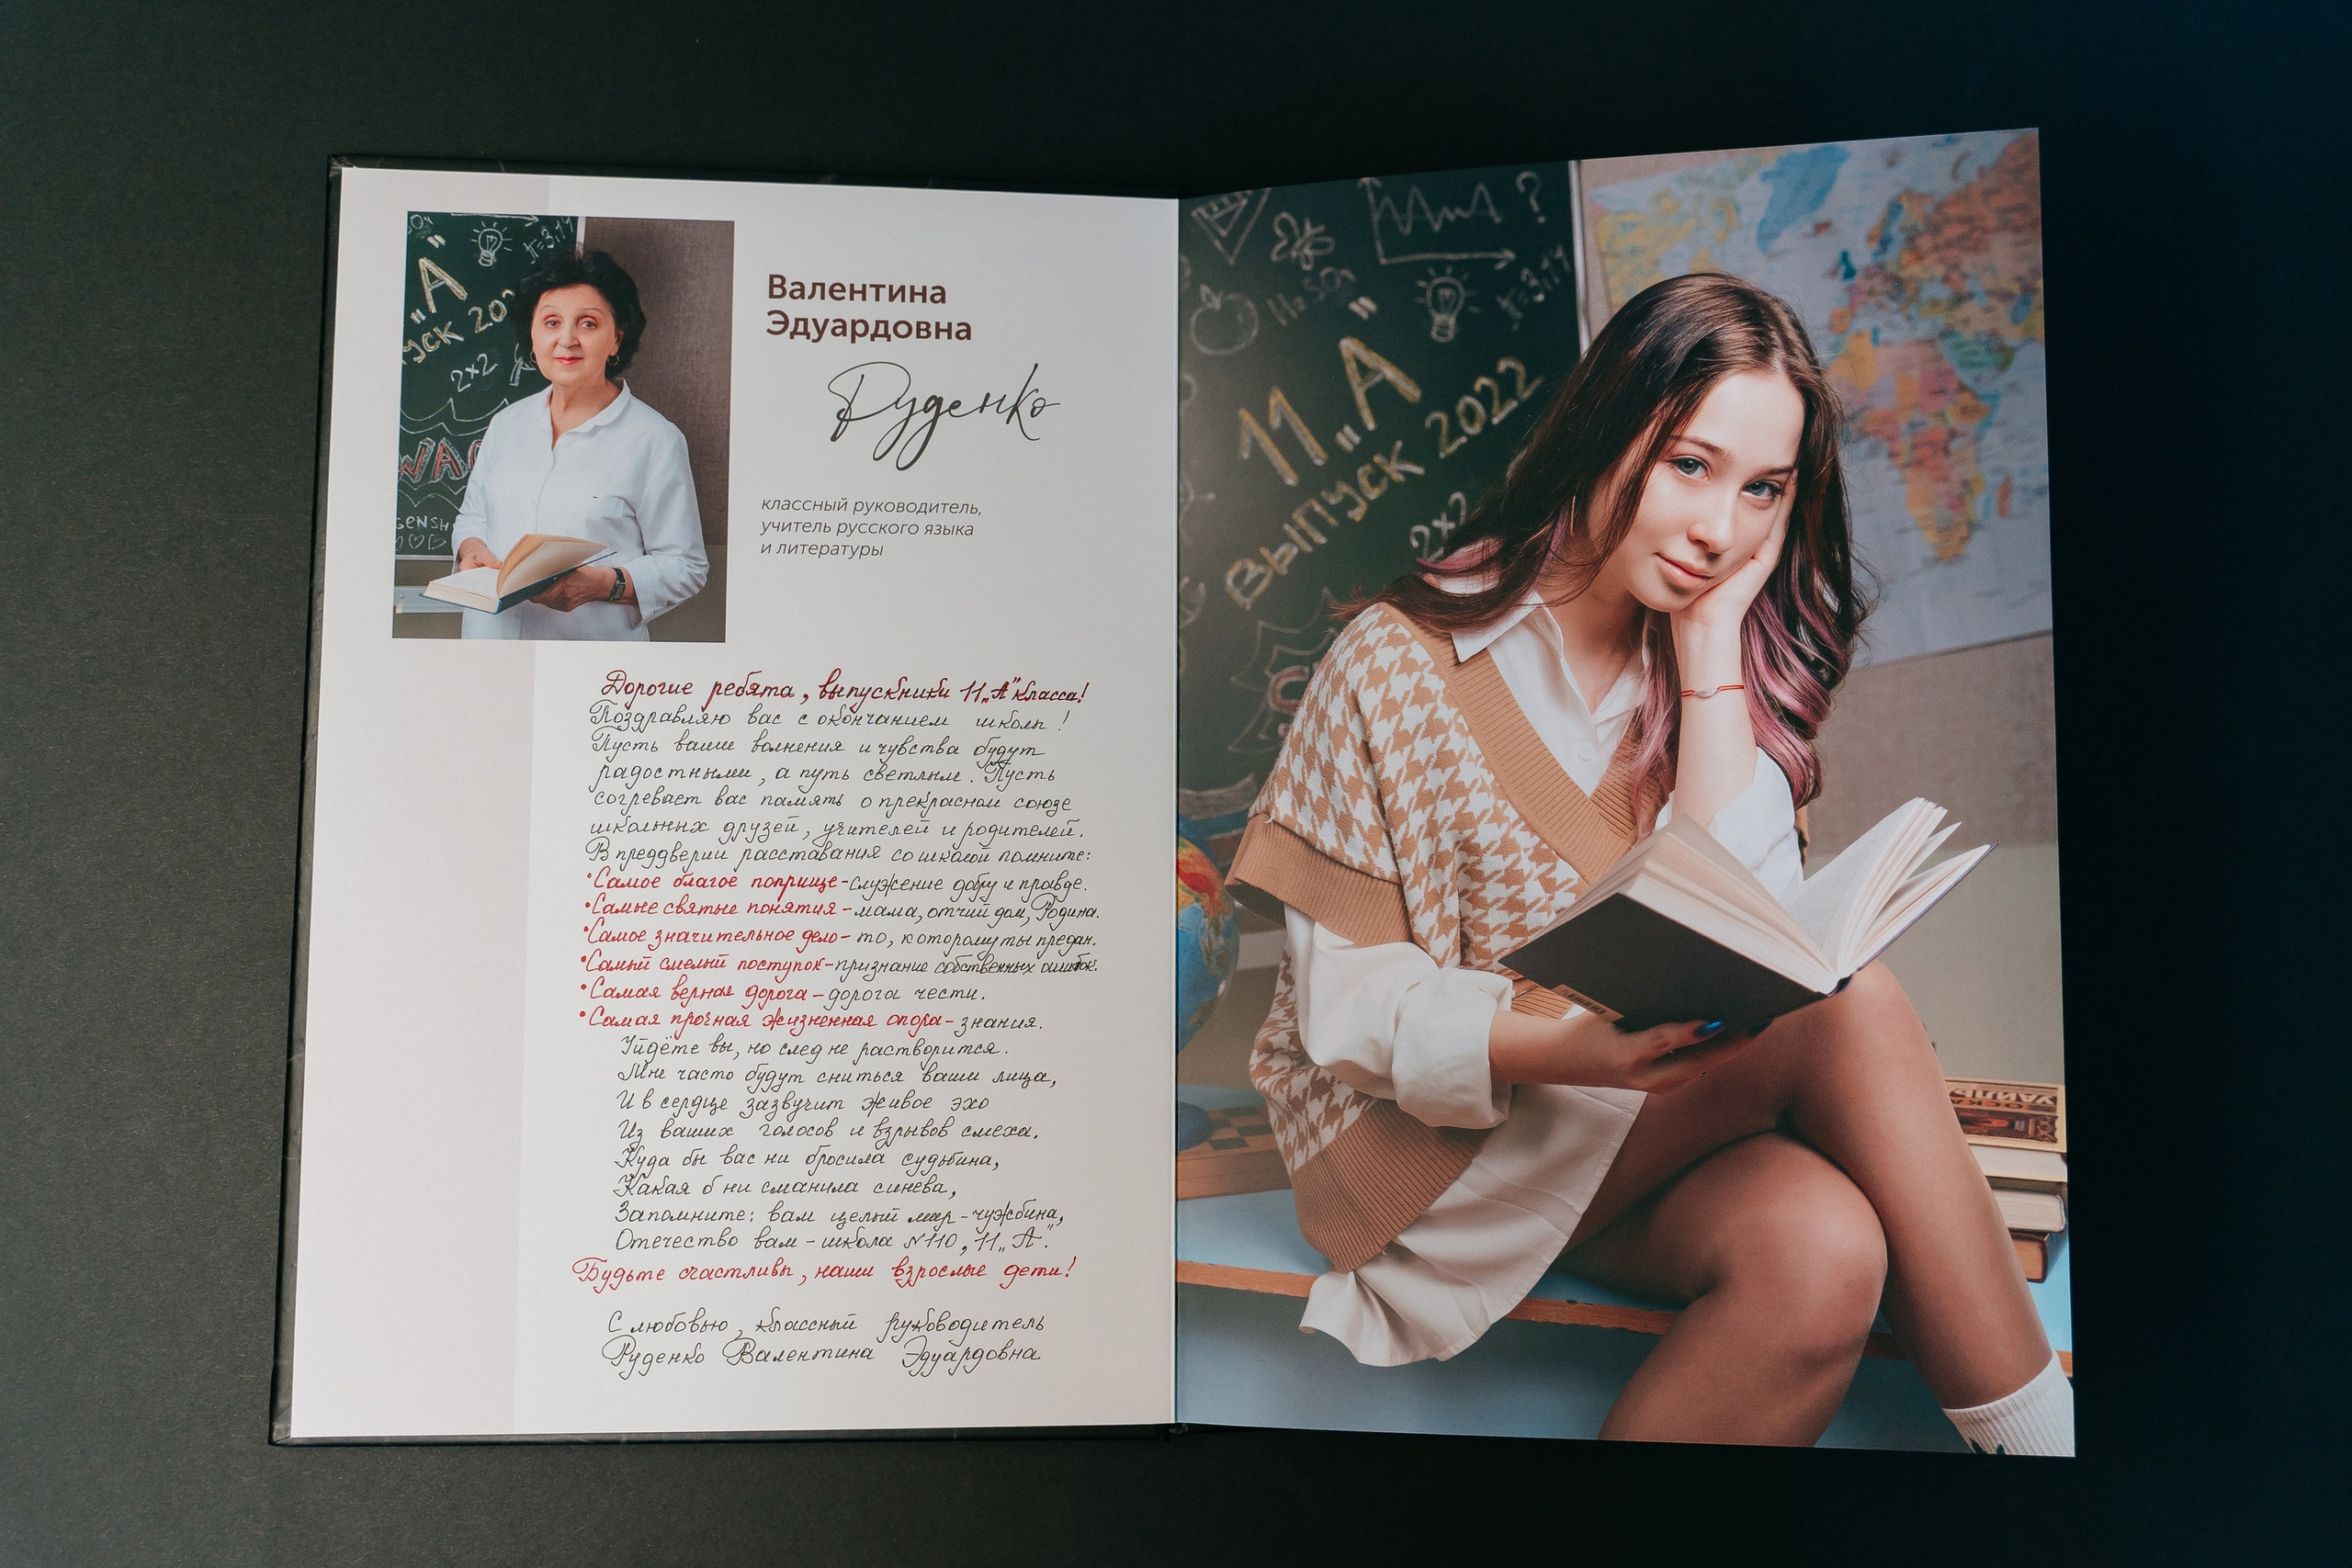 "А"
УСК 20
2x2
WAS
GENSH
π=3,14
Валентина
Эдуардовна
Руденко
классный руководитель,
учитель русского языка
и литературы
Дорогие ребята, выпускники 11 „А" класса!
Поздравляю вас с окончанием школы!
Пусть ваши волнения и чувства будут
радостными, а путь светлым. Пусть
согревает вас память о прекрасном союзе
школьных друзей, учителей и родителей.
В преддверии расставания со школой помните:
•Самое благое поприще-служение добру и правде.
•Самые святые понятия-мама, отчий дом, Родина.
•Самое значительное дело-то, которому ты предан.
•Самый смелый поступок-признание собственных ошибок.
•Самая верная дорога-дорога чести.
•Самая прочная жизненная опора-знания.
Уйдёте вы, но след не растворится.
Мне часто будут сниться ваши лица,
И в сердце зазвучит живое эхо
Из ваших голосов и взрывов смеха.
Куда бы вас ни бросила судьбина,
Какая б ни сманила синева,
Запомните: вам целый мир-чужбина,
Отечество вам-школа №110, 11 „А".
Будьте счастливы, наши взрослые дети!
С любовью, классный руководитель
Руденко Валентина Эдуардовна
?
H₂SO₄
π=3,14
11 „А"
ВЫПУСК 2022
2x2
ОСКАР
УАЙЛЬД